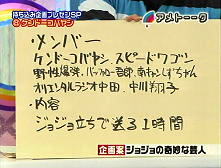 持ち込み企画プレゼンSP
⑧ケンドーコバヤシ
アメトーーク
メンバー
ケンドーコバヤシ、スピードワゴン
野性爆弾、バッファロー吾郎、南キャンしずちゃん
オリエンタルラジオ中田、中川翔子
・内容
ジョジョ立ちで送る1時間
企画案
ジョジョの奇妙な芸人